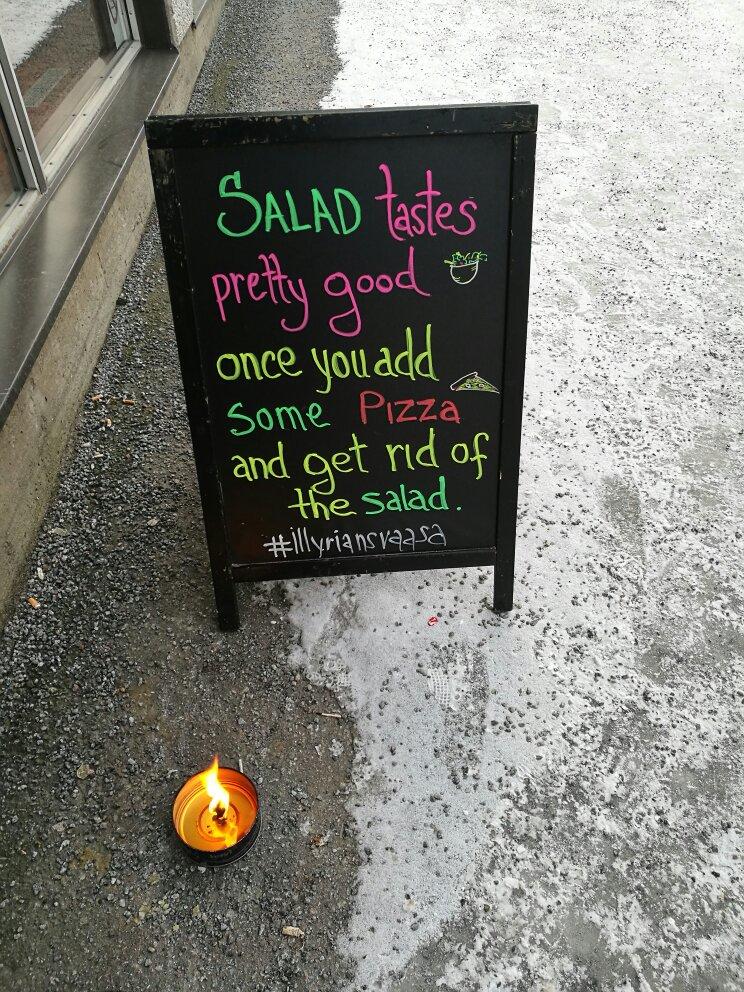 SALAD tastes
pretty good
once you add
some Pizza
and get rid of
the salad.
#illyriansvaasa